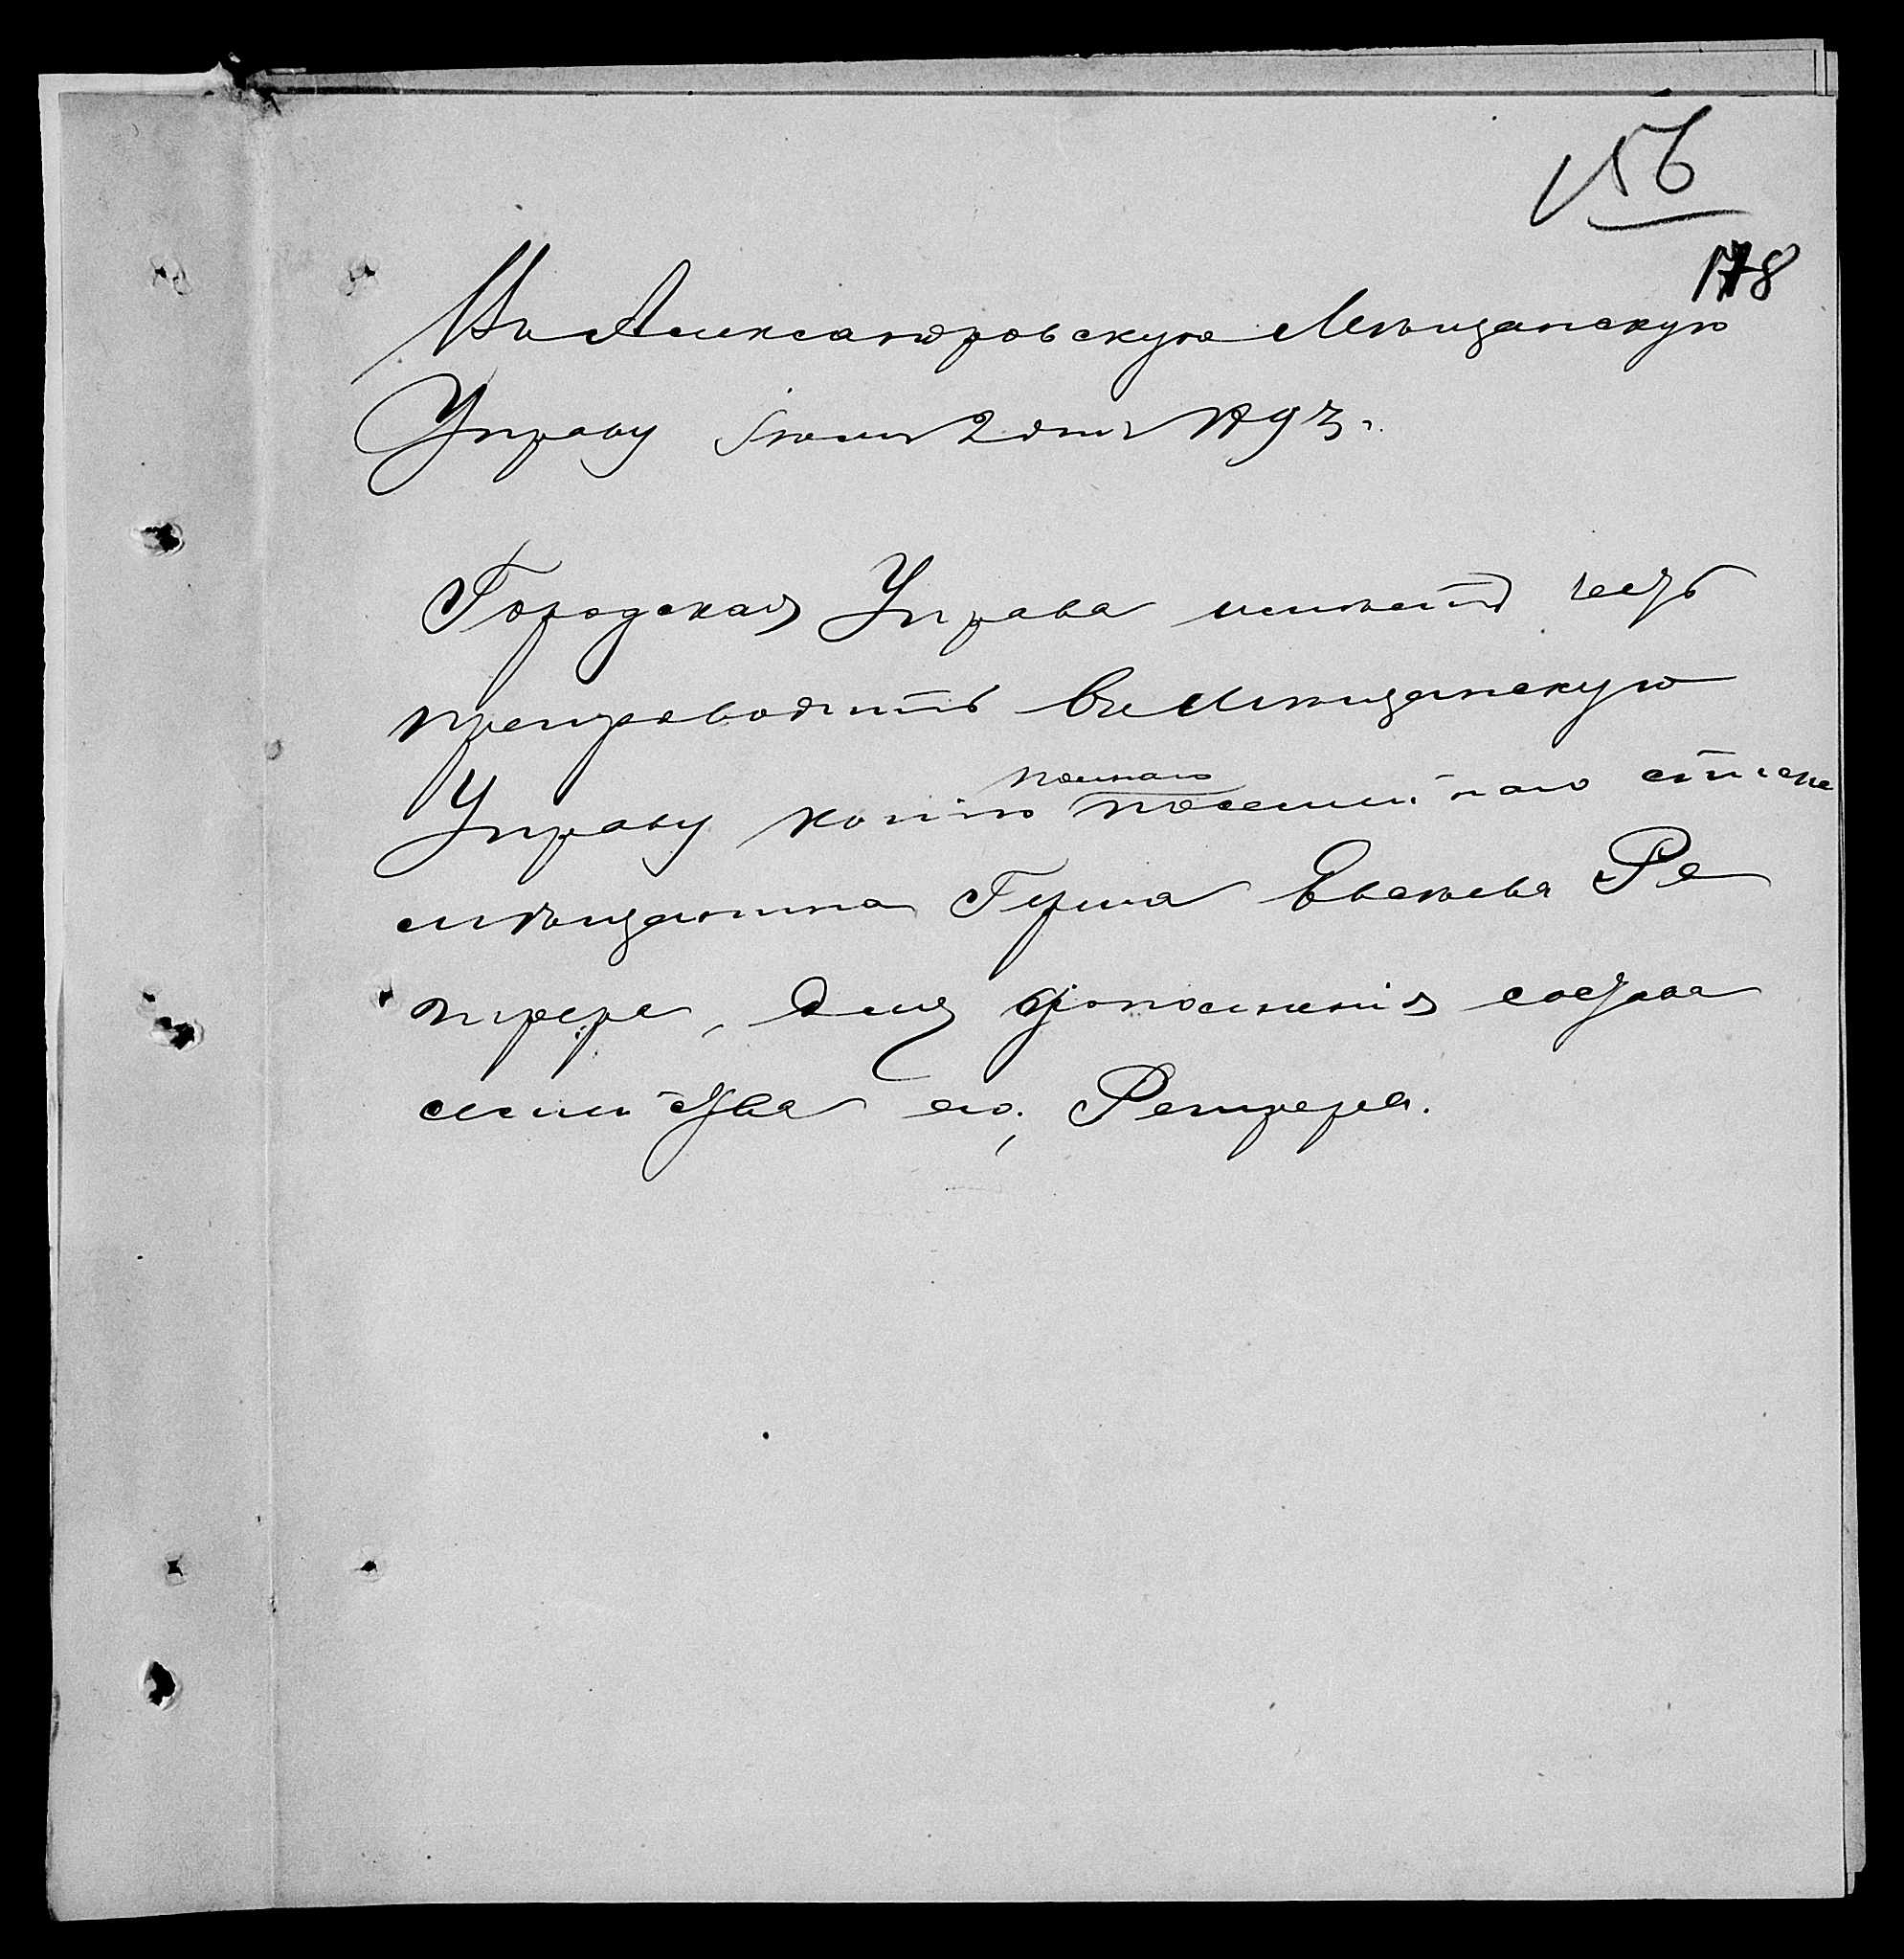 156
178
Въ Александровскую Мѣщанскую
Управу Іюля 2 дня 1893 г.
Городская Управа имѣетъ честь
препроводить въ Мѣщанскую
полнаго
Управу копію посемейнаго списка
мѣщанина Гирша Евсѣева Ре
прера, для дополненія состава
семейства его, Репрера.